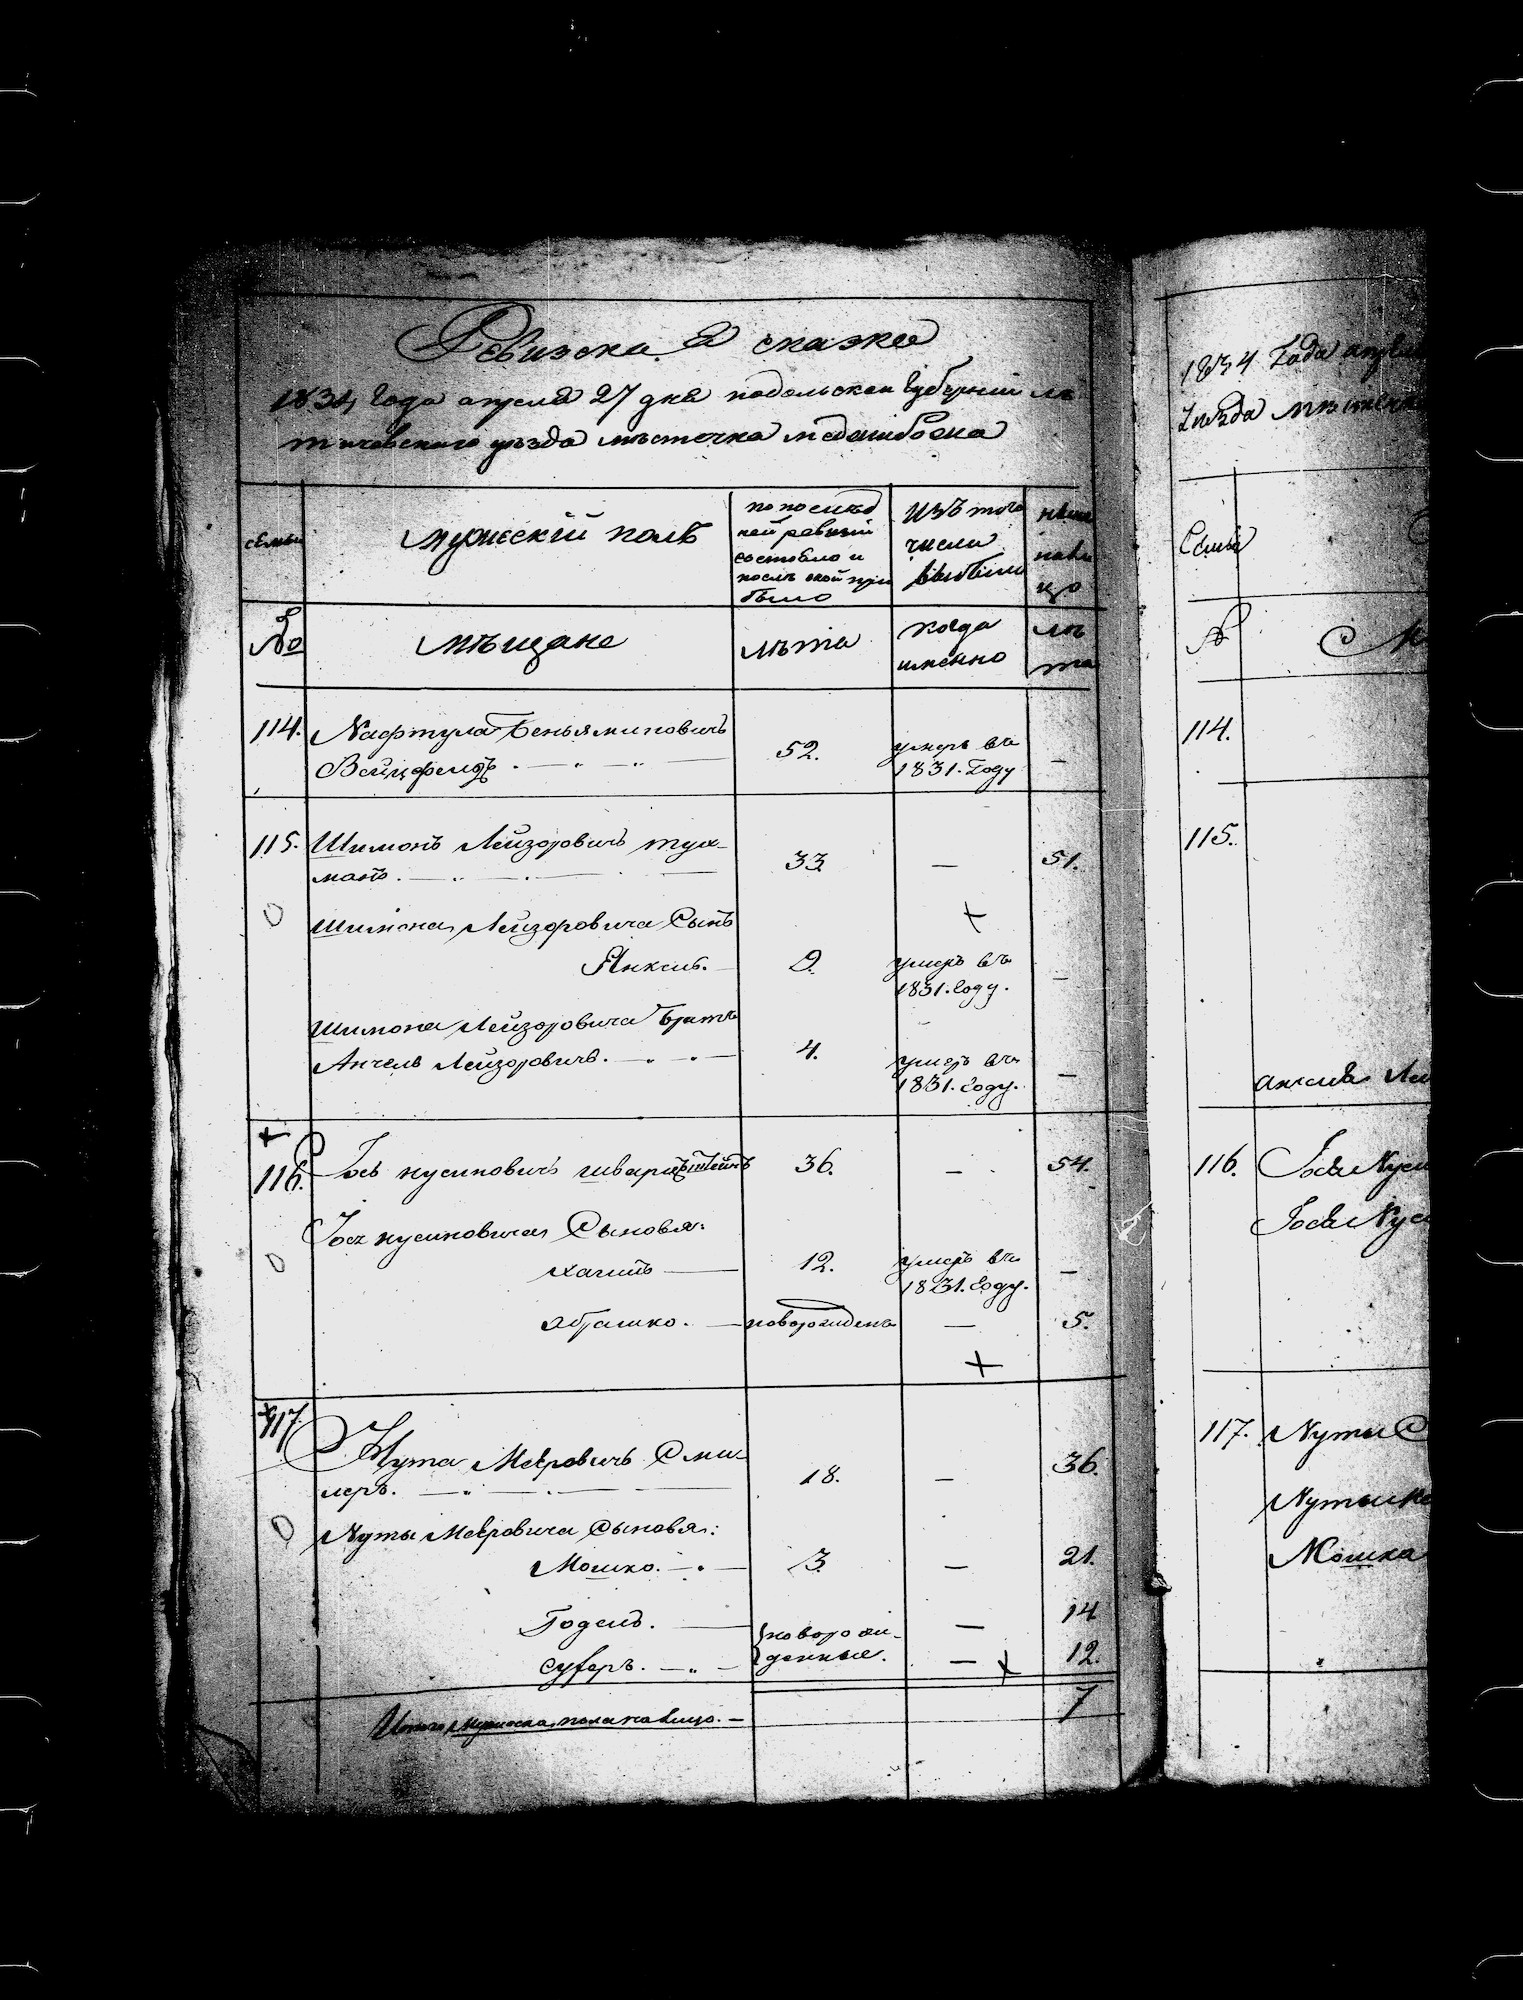 Ревизская сказка
1834 года апреля 27 дня подольской губернии ле
тичевского уѣзда мѣстечка меджибожа
семьи
мужескій полъ
по послѣд
ней ревизіи
состояло и
послѣ оной при
было
Изъ того
числа
выбыли
ныне
на ли
цо
№
мѣщане
лѣта
когда
именно
лѣ
та
114. Нафтула Беньяминовичъ
Вейцфельдъ . — „ — „ —
52.
умеръ въ
1831. Году
—
115. Шимонъ Лейзоровичъ тух-
манъ. — „ — . — —
33.
—
51.
Шимона Лейзоровича Сынъ
Янкель. —
2.
умеръ въ
1831. Году.
—
Шимона Лейзоровича Братъ
Анчель Лейзоровичъ. — „ — „ —
4.
умеръ въ
1831. Году.
—
116. Іось нусиновичъ шварцштейнъ
36.
—
54.
Іося нусиновича Сыновья:
хаимъ —
12.
умеръ въ
1831. Году.
—
Абрашко. —
новорожденъ
—
5.
117.
Нута Меровичъ Сми-
леръ. — „ — . — —
18.
—
36.
Нуты Меровича Сыновья:
Мошко. — „ —
3.
—
21.
Годель. —
новорож-
денные.
—
14
Суферъ. — „ —
—
12.
Итого Мужеска пола на лицо. —
7
1834 Года апреля
уѣзда мѣстечка
Семьи
№
114.
115.
116. Іося Нуси
Іося Нус
117. Нуты С
Нуты
Мошка